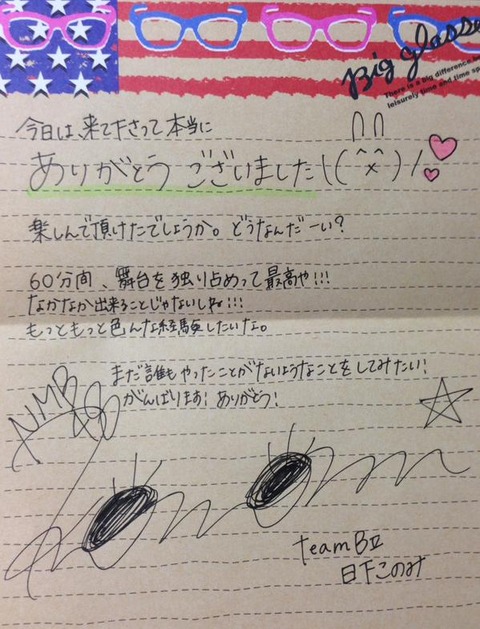 Big glasses
There is a big difference b
leisurely time and time sp
今日は、来て下さって本当に
ありがとうございました\(^x^)/
楽しんで頂けたでしょうか。どうなんだーい?
60分間、舞台を独り占めって最高や!!!
なかなか出来ることじゃないしね!!!
もっともっと色んな経験したいな。
まだ誰もやったことがないようなことをしてみたい!
がんばります! ありがとう!
NMB
48
teamBⅡ
日下このみ